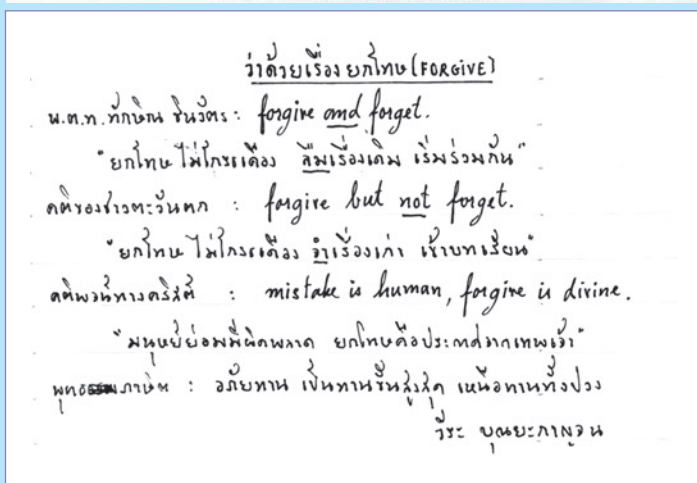 ว่าด้วยเรื่อง ยกโทษ (FORGIVE)
พ.ต.ท. ทักษิณ ชินวัตร : forgive and forget.
"ยกโทษ ไม่โกรธเคือง ลืมเรื่องเดิม เริ่มร่วมกัน"
คติของชาวตะวันตก : forgive but not forget.
"ยกโทษ ไม่โกรธเคือง จำเรื่องเก่า เข้าบทเรียน"
คติพจน์ทางคริสต์ : mistake is human, forgive is divine.
"มนุษย์ย่อมมีผิดพลาด ยกโทษคือประกาศจากเทพเจ้า"
พุทธภาษิต : อภัยทาน เป็นทานชั้นสูงสุด เหนือทานทั้งปวง
วีระ บุณยะกาญจน